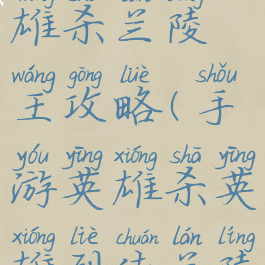 雄杀兰陵
wáng gōng lüè shǒu
王攻略(手
yóu yīng xióng shā yīng
游英雄杀英
xióng liè chuán lán líng